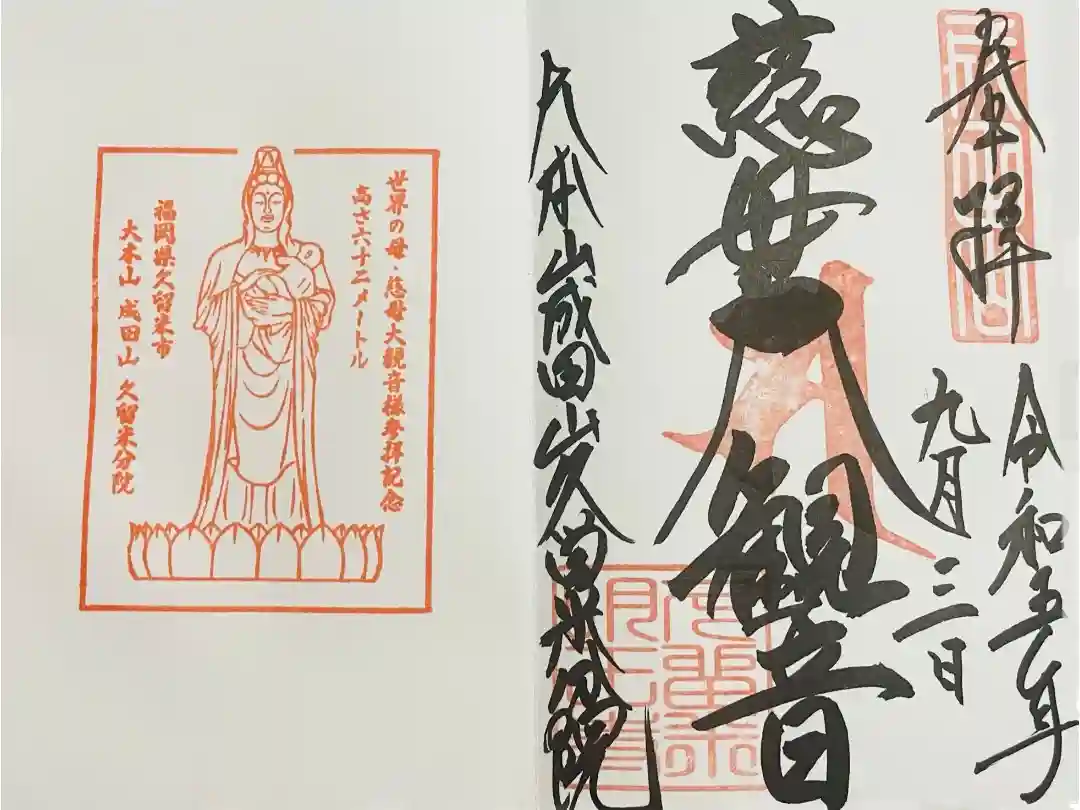 奉拝
令和五年
九月三日
慈母大観音
大本山成田山久留米分院
世界の母・慈母大観音様参拝記念
高さ六十二メートル
福岡県久留米市
大本山 成田山 久留米分院